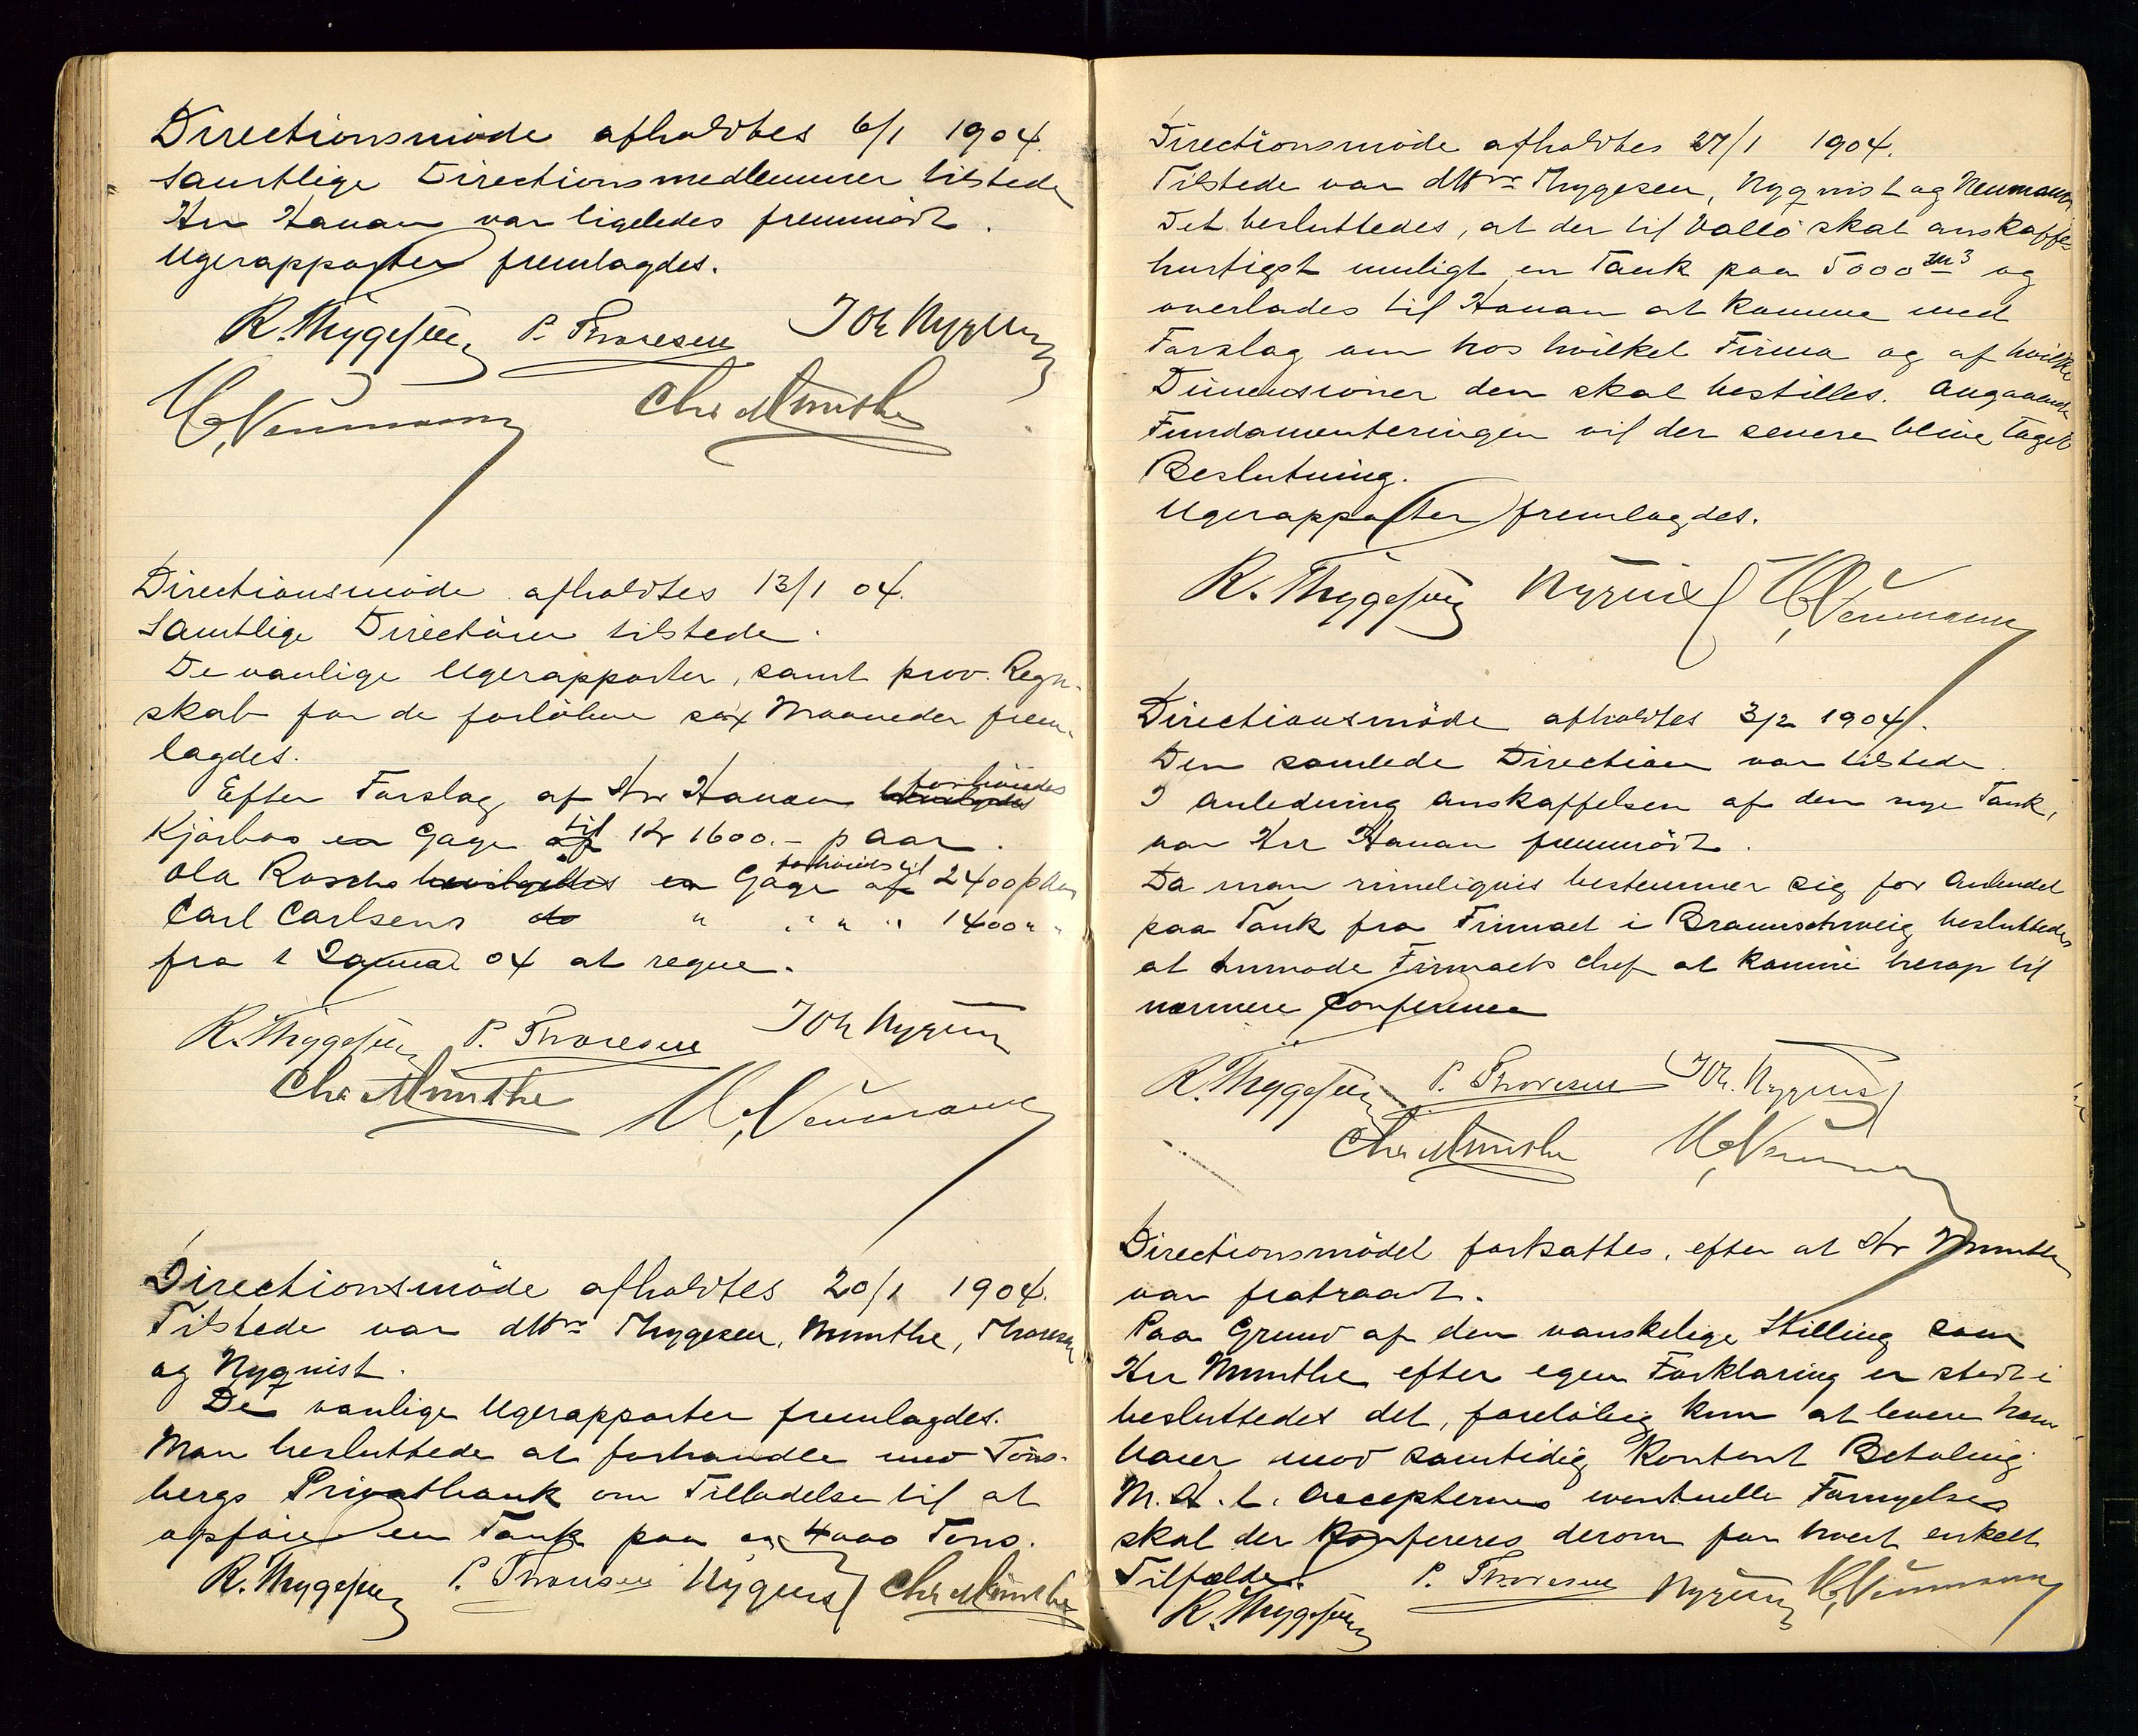 Directionsmöde afholdtes 6/1 1904.
Samtlige Directionsmedlemmer tilstede
Hr Hanan var ligeledes fremmödt.
Ugerapporter fremlagdes.
R. Thygesen P. Thoresen Joh Nyquist
M. Neumann Chr Munthe
Directionsmöde afholdtes 13/1 04.
Samtlige Directörer tilstede.
De vanlige Ugerapporter, samt prov. Regn-
skab for de forlöbne sex Maaneder frem-
lagdes.
Efter Forslag af Hr Hanan forhöiedes
Kjörbos Gage til Kr 1600.- p Aar.
Ola Roschs Gage forhöiedes til 2400 p Aar
Carl Carlsens do " " " " 1400 " "
fra 1 Januar 04 at regne.
R. Thygesen P. Thoresen Joh Nyquist
Chr Munthe M. Neumann
Directionsmöde afholdtes 20/1 1904.
Tilstede var dHrr Thygesen, Munthe, Thoresen
og Nyqvist.
De vanlige Ugerapporter fremlagdes.
Man besluttede at forhandle med Töns-
bergs Privatbank om Tilladelse til at
opföre en Tank paa ca 4000 Tons.
R. Thygesen P. Thoresen Nyquist Chr Munthe
Directionsmöde afholdtes 27/1 1904.
Tilstede var dHrr Thygesen, Nyqvist og Neumann
Det besluttedes, at der til Vallö skal anskaffes
hurtigst muligt en Tank paa 5000 m3 og
overlades til Hanan at komme med
Forslag om hos hvilket Firma og af hvilke
Dimensioner den skal bestilles. Angaaende
Fundamenteringen vil der senere blive taget
Beslutning.
Ugerapporter fremlagdes.
R. Thygesen Nyquist M. Neumann
Directionsmöde afholdtes 3/2 1904.
Den samlede Direction var tilstede.
I Anledning Anskaffelsen af den nye Tank,
var Hr Hanan fremmödt.
Da man rimeligvis bestemmer sig for Anbudet
paa Tank fra Firmaet i Braunschweig besluttedes
at anmode Firmaets chef at komme herop til
nærmere Conference
R. Thygesen P. Thoresen Joh. Nyquist
Chr Munthe M. Neumann
Directionsmödet fortsattes, efter at Hr Munthe
var fratraadt.
Paa Grund af den vanskelige Stilling som
Hr Munthe efter egen Forklaring er stedt i
besluttedes det, foreløbig kun at levere ham
Varer mod samtidig Kontant Betaling
M.H.t. Accepternes eventuelle Fornyelse
skal der Konfereres derom for hvert enkelt
Tilfælde.
R. Thygesen P. Thoresen Nyquist M. Neumann